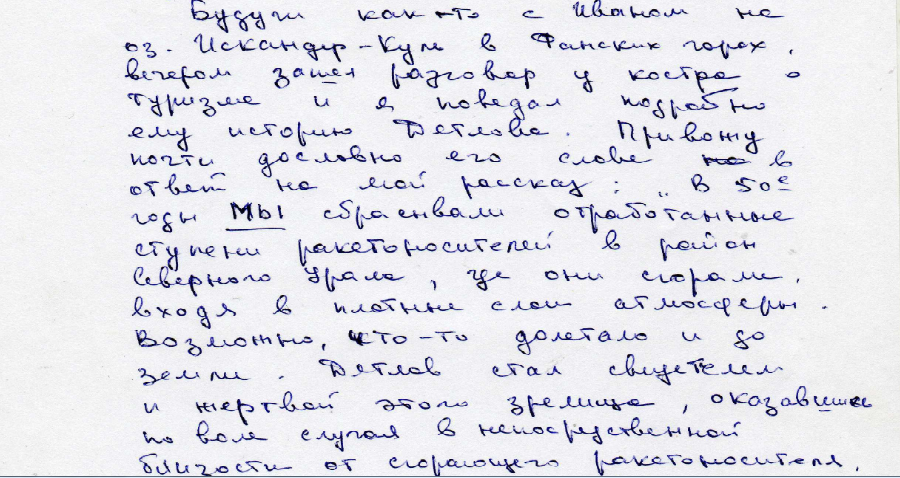 Будучи как-то с Иваном на
оз. Искандер-Куль в Фанских горах,
вечером зашел разговор у костра о
туризме и я поведал подробно
ему историю Детлова. Привожу
почти дословно его слова на в
ответ на мой рассказ: „В 50е
годы МЫ сбрасывали отработанные
ступени ракетоносителей в район
Северного Урала, где они сгорали,
входя в плотные слои атмосферы.
Возможно, что-то долетало и до
земли. Детлов стал свидетелем
и жертвой этого зрелища, оказавшись
по воле случая в непосредственной
близости от сгорающего ракетоносителя.